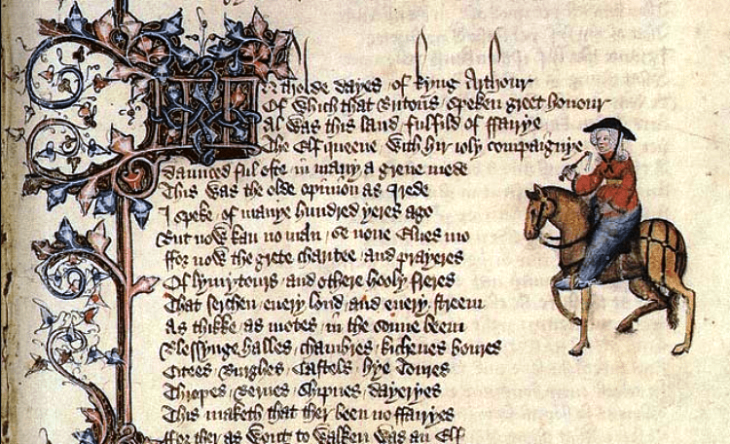 In tholde dayes / of kyng Arthour
Of which that Britons / speken greet honour
Al was this land / fulfild of ffairye
The Elf queene / with hir ioly compaignye
Daunced ful ofte / in many a grene mede
This was the olde opinion / as I rede
I speke / of manye hundred yeres ago
But now kan no man / se none Elues mo
ffor now the grete charitee / and prayeres
Of lymytours / and othere hooly freres
That serchen / euery lond / and euery streem
As thikke / as motes / in the sonne beem
Blessynge halles / chambres / kichenes boures
Citees / Burghes / Castels / hye Toures
Thropes / Bernes / Shipnes / dayeryes
This maketh that ther been no ffairyes
ffor ther as wont to walken was an Elf